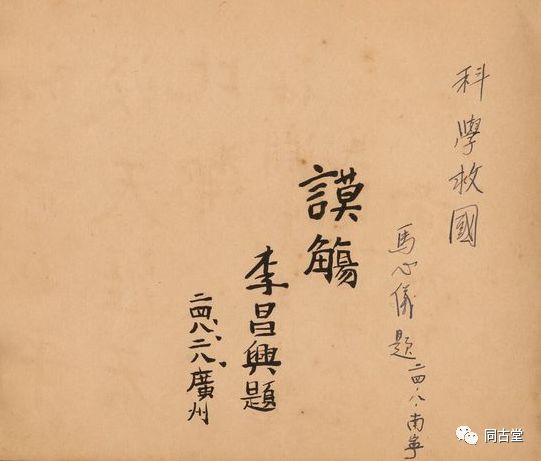 科學救國
馬心儀題 二四、八、南寧
謨觴
李昌興題
二四、八、二八、廣州
同古堂